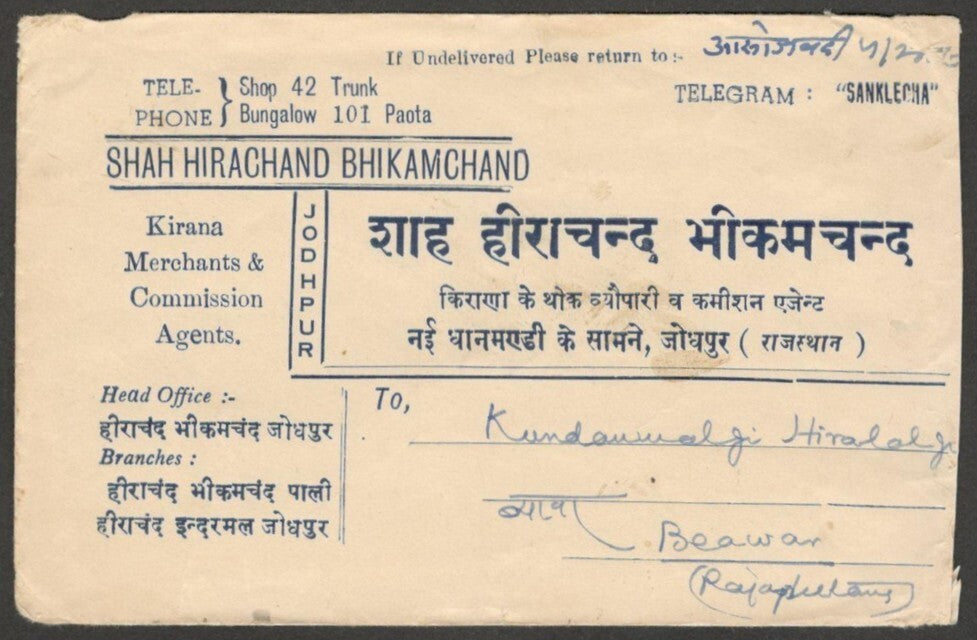 If Undelivered Please return to :- आसोजवदी
TELE-PHONE } Shop 42 Trunk
Bungalow 101 Paota
TELEGRAM : "SANKLECHA"
SHAH HIRACHAND BHIKAMCHAND
Kirana
Merchants &
Commission
Agents.
JODHPUR
शाह हीराचन्द भीकमचन्द
किराणा के थोक व्यौपारी व कमीशन एजेन्ट
नई धानमण्डी के सामने, जोधपुर ( राजस्थान )
Head Office :-
हीराचंद भीकमचंद जोधपुर
Branches :
हीराचंद भीकमचंद पाली
हीराचंद इन्दरमल जोधपुर
To,
Kundanmalji Hiralalji
ब्यावर
Beawar
(Rajaputana)